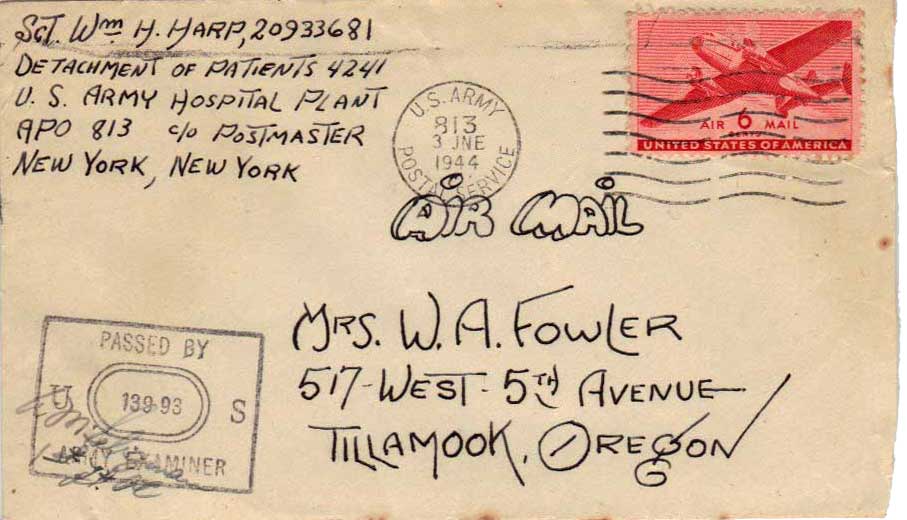 Sgt. Wm H. Harp, 20933681
Detachment of Patients 4241
U. S. Army Hospital Plant
APO 813 c/o Postmaster
New York, New York
U.S. ARMY
813
3 JNE
1944
POSTAL SERVICE
AIR 6 MAIL
CENTS
UNITED STATES OF AMERICA
Air Mail
Mrs. W. A. Fowler
517-West-5th Avenue
Tillamook, Oregon
PASSED BY
U 13993 S
ARMY EXAMINER